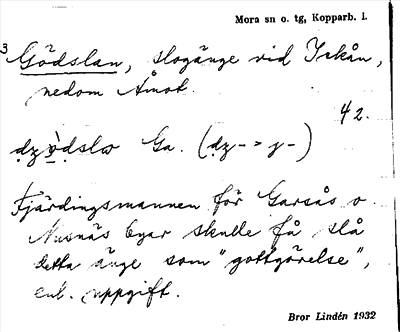 Mora sn o. tg, Kopparb. l.
3
Gödslan, slogänge vid Ickån,
nedom Åmot.
42.
Ga. (dz- > j-)
Fjärdingsmannen för Garsås o
Nusnäs byar skulle få slå
detta änge som "gottgörelse",
enl. uppgift.
Bror Lindén 1932